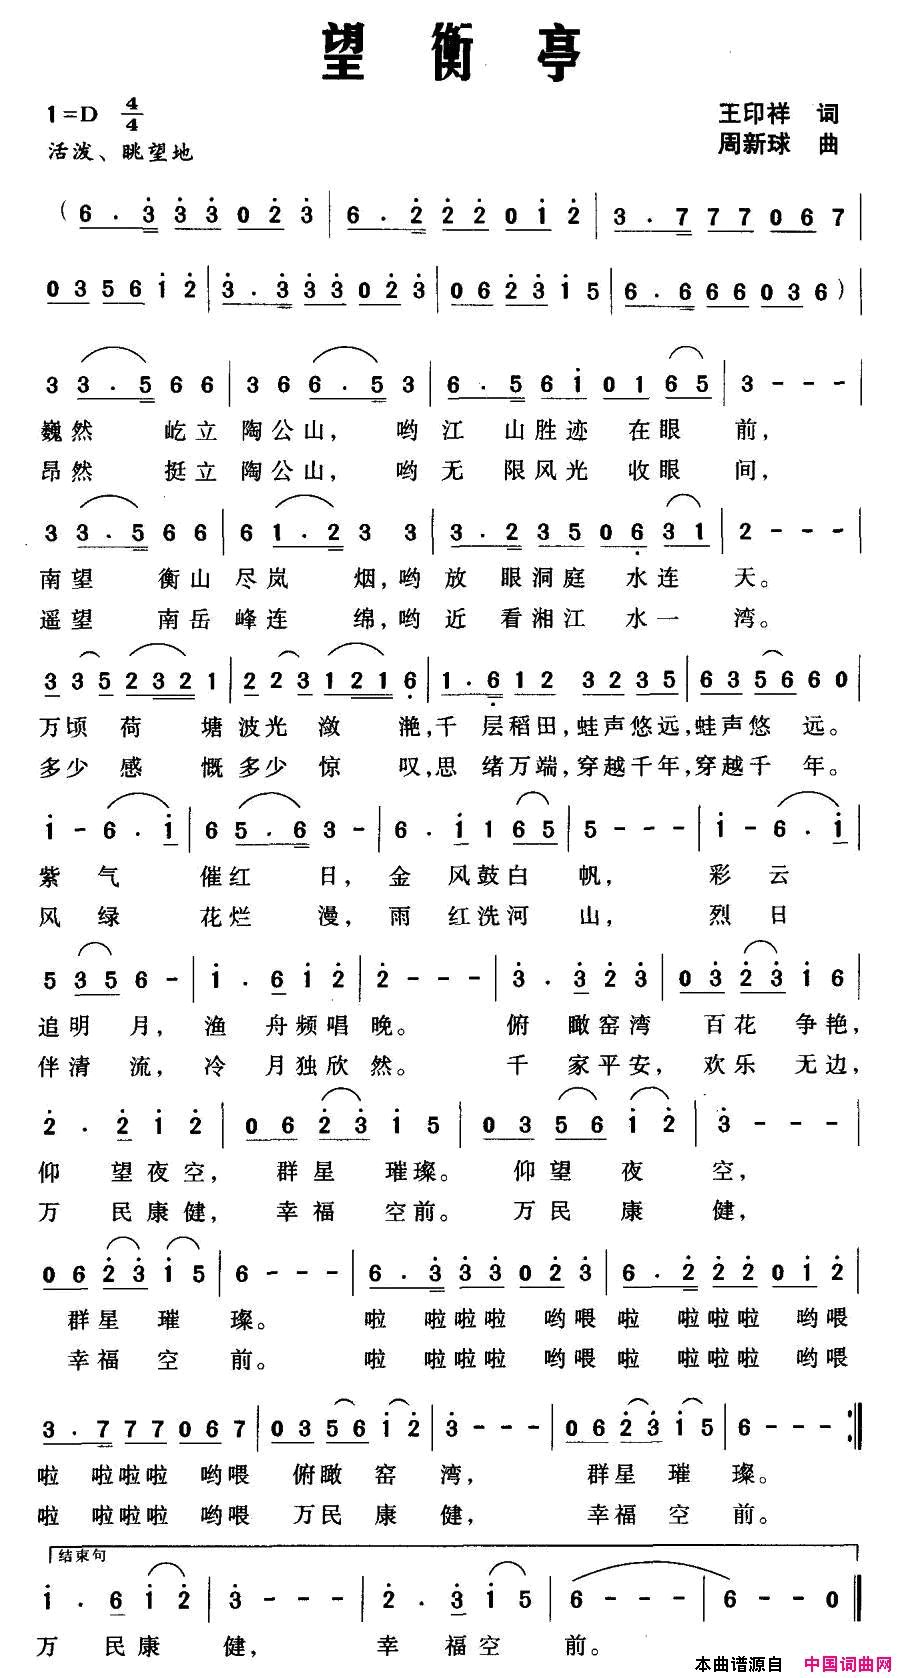 望衡亭
1=D 4/4
王印祥 词
活泼、眺望地
周新球 曲
(6 . 3 3 3 0 2 3 | 6 . 2 2 2 0 1 2 | 3 . 7 7 7 0 6 7 |
0 3 5 6 1 2 | 3 . 3 3 3 0 2 3 | 0 6 2 3 1 5 | 6 . 6 6 6 0 3 6 ) |
3 3 . 5 6 6 | 3 6 6 6 . 5 3 | 6 . 5 6 1 0 1 6 5 | 3 - - - |
巍然 屹立陶公山，哟江 山胜迹 在眼 前，
昂然 挺立陶公山，哟无 限风光 收眼 间，
3 3 . 5 6 6 | 6 1 . 2 3 3 | 3 . 2 3 5 0 6 3 1 | 2 - - - |
南望 衡山尽岚 烟，哟放 眼洞庭 水连 天。
遥望 南岳峰连 绵，哟近 看湘江 水一 湾。
3 3 5 2 3 2 1 | 2 2 3 1 2 1 6 | 1 . 6 1 2 3 2 3 5 | 6 3 5 6 6 0 |
万顷 荷 塘波光 潋 滟，千 层稻田，蛙声悠远，蛙声悠 远。
多少 感 慨多少 惊 叹，思 绪万端，穿越千年，穿越千 年。
1 - 6 . 1 | 6 5 . 6 3 - | 6 . 1 1 6 5 | 5 - - - | 1 - 6 . 1 |
紫 气 催红 日，金 风鼓白 帆， 彩 云
风 绿 花烂 漫，雨 红洗河 山， 烈 日
5 3 5 6 - | 1 . 6 1 2 | 2 - - - | 3 . 3 2 3 | 0 3 2 3 1 6 |
追明 月， 渔 舟频唱 晚。 俯 瞰窑湾 百花 争艳，
伴清 流，冷 月独欣 然。 千 家平安，欢乐 无边，
2 . 2 1 2 | 0 6 2 3 1 5 | 0 3 5 6 1 2 | 3 - - - |
仰 望夜空， 群星 璀璨。 仰望 夜 空，
万 民康健， 幸福 空前。 万民 康 健，
0 6 2 3 1 5 | 6 - - - | 6 . 3 3 3 0 2 3 | 6 . 2 2 2 0 1 2 |
群星 璀 璨。 啦 啦啦啦 哟喂 啦 啦啦啦 哟喂
幸福 空 前。 啦 啦啦啦 哟喂 啦 啦啦啦 哟喂
3 . 7 7 7 0 6 7 | 0 3 5 6 1 2 | 3 - - - | 0 6 2 3 1 5 | 6 - - - :‖
啦 啦啦啦 哟喂 俯瞰 窑 湾， 群星 璀 璨。
啦 啦啦啦 哟喂 万民 康 健， 幸福 空 前。
结束句
1 . 6 1 2 | 3 - - - | 2 . 3 1 5 | 6 - - - | 6 - - 0 ‖
万 民康 健， 幸 福空 前。
本曲谱源自 中国词曲网